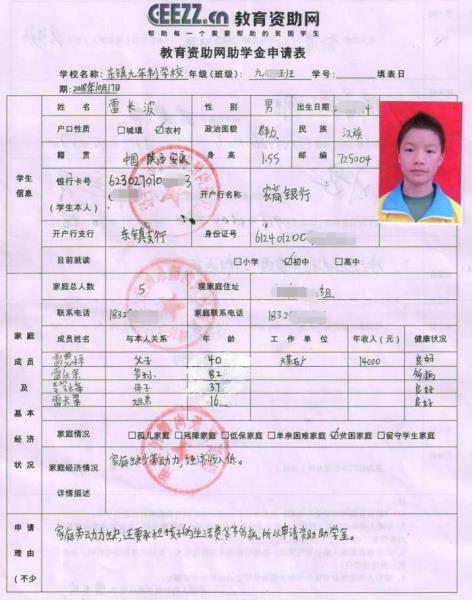 CEEZZ.cn 教育资助网
帮助每一个需要帮助的贫困学生
教育资助网助学金申请表
学校名称:东镇九年制学校 年级(班级): 九 班 学号: 填表日
期:2018年10月17日
姓名 雷长波 性别 男 出生日期 4
户口性质 □城填 ☑农村 政治面貌 群众 民族 汉族
籍贯 中国陕西 身高 1.55 邮编 725004
学生
信息
银行卡号
(学生本人)
623027010 3
开户行名称 农商银行
开户行支行 东镇支行 身份证号 612401200
目前就读 □小学 ☑初中 □高中
家庭总人数 5 现家庭住址 组
联系电话 1832 家庭联系电话 1832
家庭
成员
及
基本
经济
状况
成员姓名 与本人关系 年龄 工作单位 年收入(元) 健康状况
父子 40 煤矿 14000 良好
82
母子 37 良好
16 良好
家庭情况 □孤儿家庭 □残障家庭 □低保家庭 □单亲困难家庭 ☑贫困家庭 □留守学生家庭
家庭经济情况
详情描述
家庭缺乏劳动力,经济收入低。
申请
理由
(不少
家庭劳动力少,还要承担孩子的生活费 所以申请资助助学金。